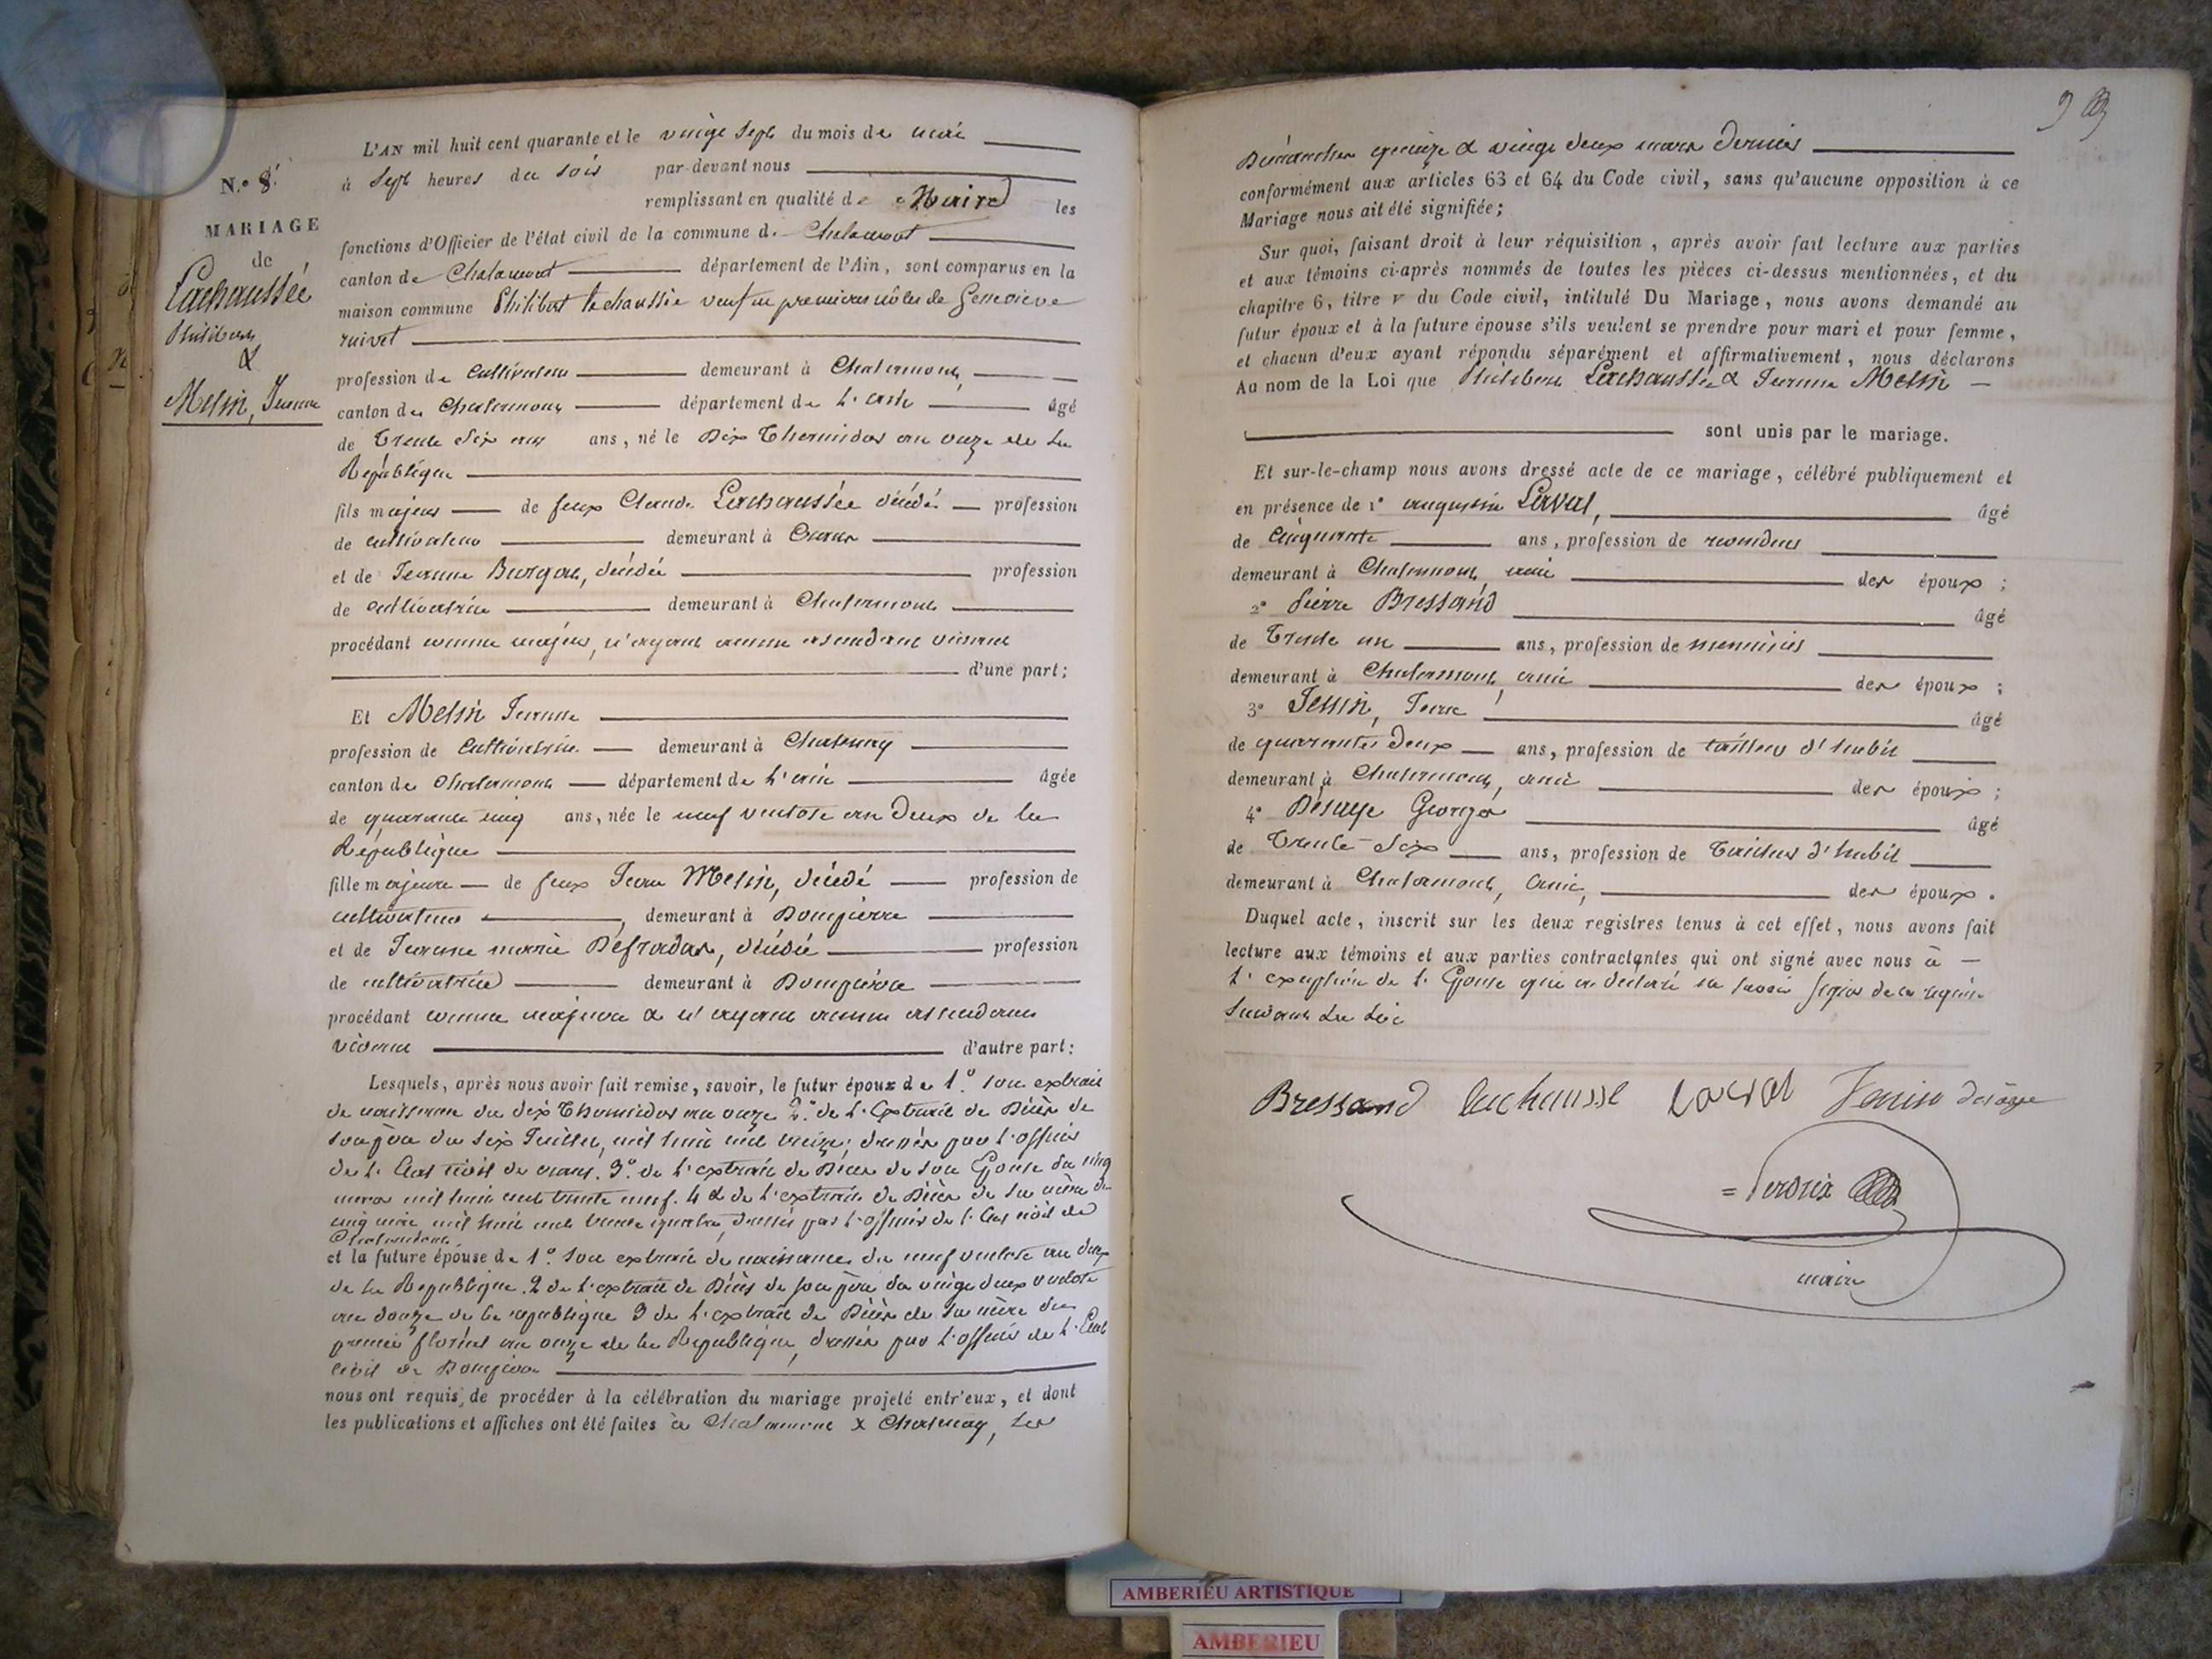 N.º 8
MARIAGE
de
Lachaussée
Philibert
&
Messin, Jeanne
L'AN mil huit cent quarante et le vingt sept du mois de mai
à Sept heures du soir par-devant nous
remplissant en qualité de Maire les
fonctions d'Officier de l'état civil de la commune de Chalamont
canton de Chalamont département de l'Ain, sont comparus en la
maison commune Philibert Lachaussée veuf en premières nôces de Genevieve
ruivet
profession de Cultivateur demeurant à Chalamont,
canton de Chalamont département de L'ain âgé
de Trente Six ans ans, né le Dix Thermidor an onze de la
République
fils majeur de feux Claude Lachaussée décédé profession
de cultivateur demeurant à Crans
et de Jeanne Burgat, décédée profession
de cultivatrice demeurant à Chalamont
procédant comme majeur, n'ayant aucun ascendant vivant
d'une part;
Et Messin Jeanne
profession de Cultivatrice demeurant à Chatenay
canton de Chalamont département de L'ain âgée
de quarante cinq ans, née le neuf ventose an Deux de la
République
fille majeure de feux Jean Messin, décédé profession de
cultivateur, demeurant à Dompierre
et de Jeanne marie Desradas, décédée profession
de cultivatrice demeurant à Dompierre
procédant comme majeure & n'ayant aucun ascendant
vivant d'autre part:
Lesquels, après nous avoir fait remise, savoir, le futur époux de 1.º Son extrait
de naissance du dix Thermidor an onze 2.º de L'Extrait de Décès de
son père du six Juillet, mil huit cent treize; dressés par l'officier
de L'Etat civil de crans. 3.º de L'extrait de Décès de son Epouse du cinq
mars mil huit cent trente neuf. 4 & de L'extrait de Décès de Sa mère du
cinq mai mil huit cent trente quatre, dressés par L'officier de L'Etat civil de
Chalamont.
et la future épouse de 1.º Son extrait de naissance du neuf ventose an deux
de la République. 2 de L'extrait de Décès de son père du vingt deux ventose
an douze de la republique 3 de L'extrait de Décès de Sa mère du
premier floréal an onze de la République, dressés par L'officier de L'Etat
Civil de Dompierre
nous ont requis de procéder à la célébration du mariage projeté entr'eux, et dont
les publications et affiches ont été faites à Chalamont & Chatenay, Les
Dimanches quinze & vingt deux mars Dernier
conformément aux articles 63 et 64 du Code civil, sans qu'aucune opposition à ce
Mariage nous ait été signifiée;
Sur quoi, faisant droit à leur réquisition, après avoir fait lecture aux parties
et aux témoins ci-après nommés de toutes les pièces ci-dessus mentionnées, et du
chapitre 6, titre v du Code civil, intitulé Du Mariage, nous avons demandé au
futur époux et à la future épouse s'ils veulent se prendre pour mari et pour femme,
et chacun d'eux ayant répondu séparément et affirmativement, nous déclarons
Au nom de la Loi que Philibert Lachaussée & Jeanne Messin
sont unis par le mariage.
Et sur-le-champ nous avons dressé acte de ce mariage, célébré publiquement et
en présence de 1º augustin Laval, âgé
de Cinquante ans, profession de
demeurant à Chalamont, ami des époux;
2º Pierre Bressand âgé
de Trente un ans, profession de menuisier
demeurant à Chalamont, ami des époux;
3º Jean âgé
de quarante Deux ans, profession de tailleur d'habit
demeurant à Chalamont, ami des époux;
4º Désaye George âgé
de Trente Six ans, profession de Tailleur d'habit
demeurant à Chalamont, ami, des époux.
Duquel acte, inscrit sur les deux registres tenus à cet effet, nous avons fait
lecture aux témoins et aux parties contractantes qui ont signé avec nous à
L'exception de L'Epouse qui a déclaré ne savoir signer de ce requise
Suivant La Loi
Bressand lachausse Laval désaye
maire
AMBERIEU ARTISTIQUE
AMBERIEU